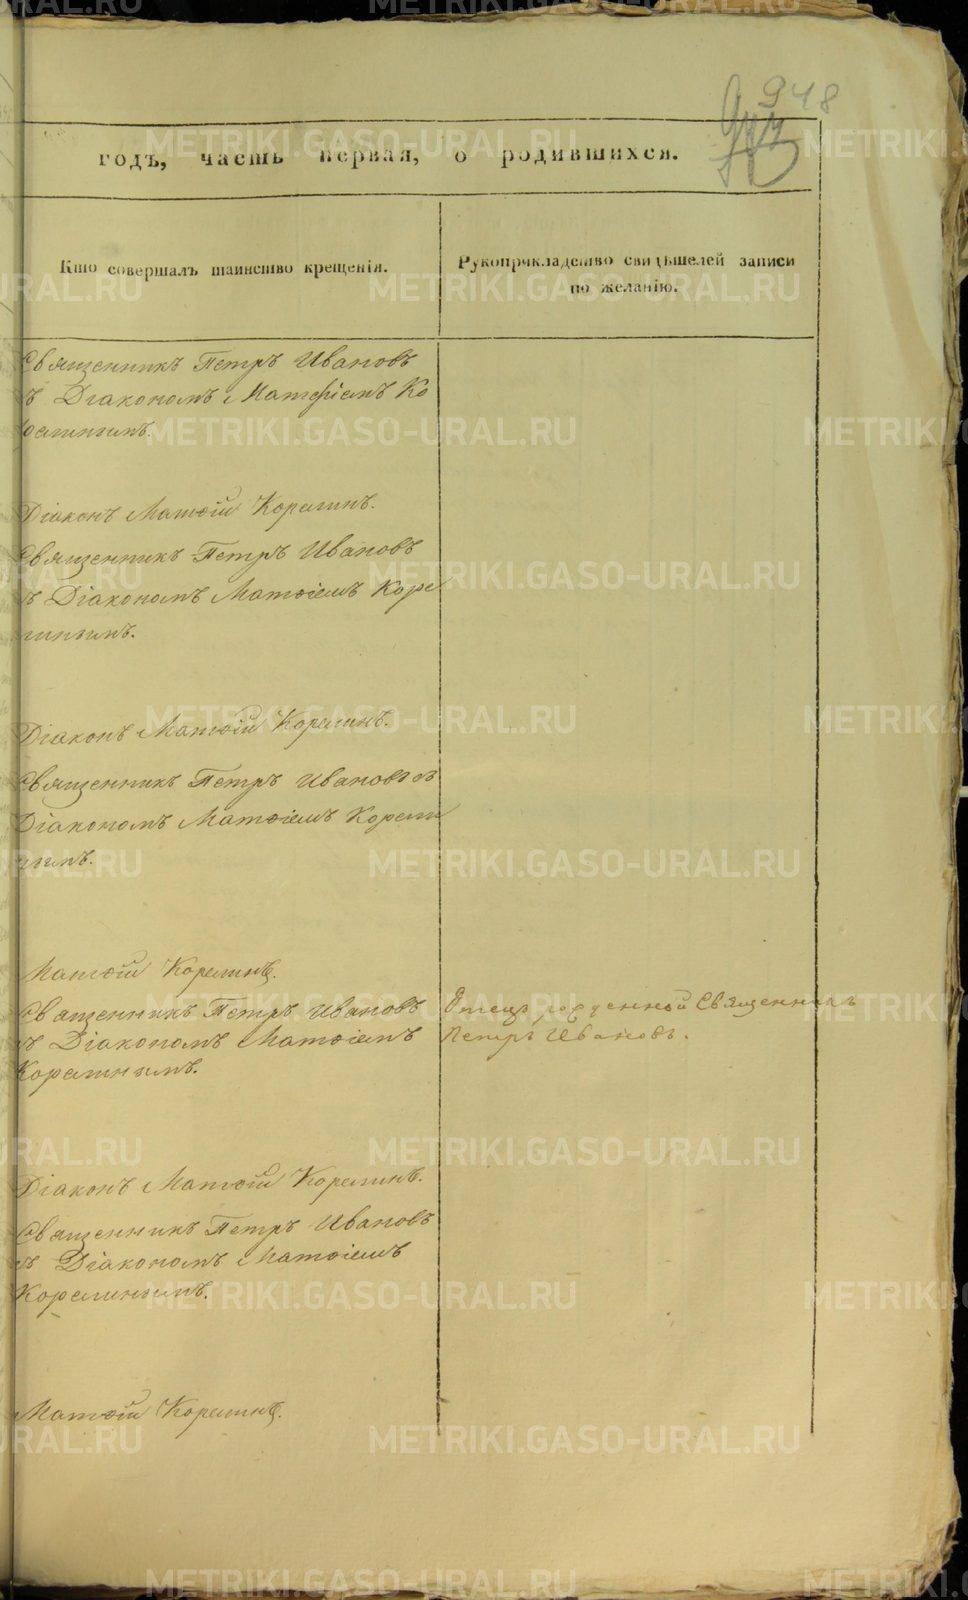 948
годъ, часть первая, о родившихся.
Кто совершалъ таинство крещенія.
Рукоприкладство свидѣтелей записи
по желанію.
Священникъ Петръ Ивановъ
съ Діакономъ Матѳіемъ Ко
Діаконъ Матѳій Корелинъ.
Священникъ Петръ Ивановъ
съ Діакономъ Матѳіемъ Коре
линымъ.
Діаконъ Матѳій Корелинъ.
Священникъ Петръ Ивановъ съ
Діакономъ Матѳіемъ Корели
нымъ.
Матѳій Корелинъ.
Священникъ Петръ Ивановъ
съ Діакономъ Матѳіемъ
Корелинымъ.
Отецъ рожденной Священникъ
Петръ Ивановъ.
Діаконъ Матѳій Корелинъ.
Священникъ Петръ Ивановъ
съ Діакономъ Матѳіемъ
Корелинымъ.
Матѳій Корелинъ.
METRIKI.GASO-URAL.RU